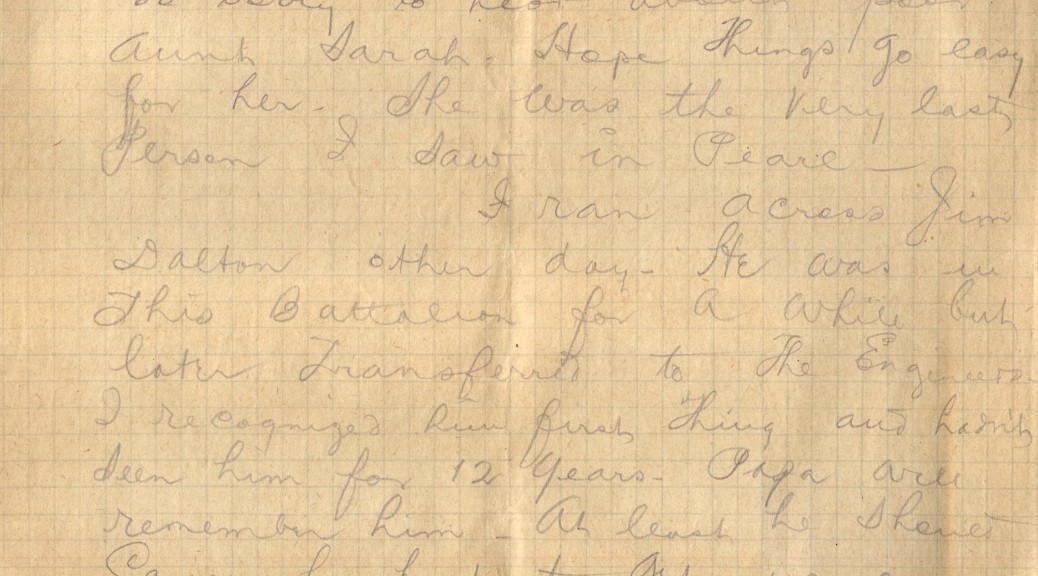 to hear about poor
Aunt Sarah. Hope Things go easy
for her - She was the very last
Person I saw in Peace -
I ran across Jim
Dalton other day - He was in
This Battalion for a while but
later Transferred to The Engineers
I recognized him first Thing and hadn't
seen him for 12 years - Papa will
remember him - At least he should